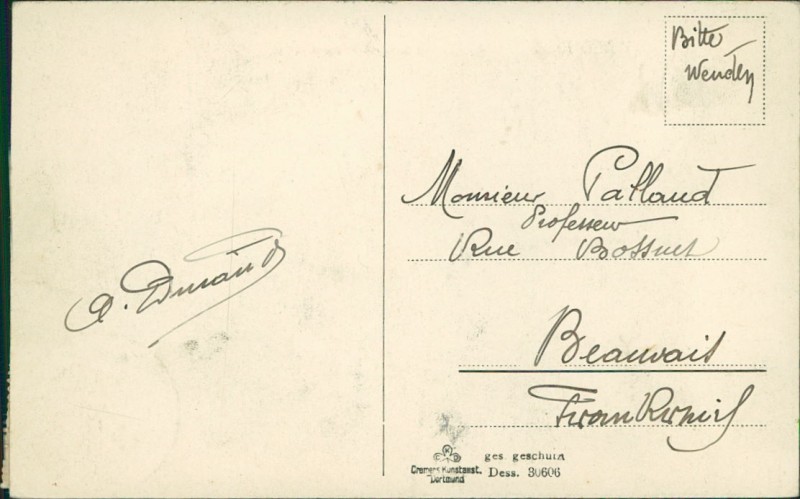 Bitte
Wenden
Monsieur Pallaud
Professeur
Rue Bossuet
Beauvais
Frankreich
A. Durand
Cremers Kunstanst.
Dortmund
ges. geschützt
Dess. 30606